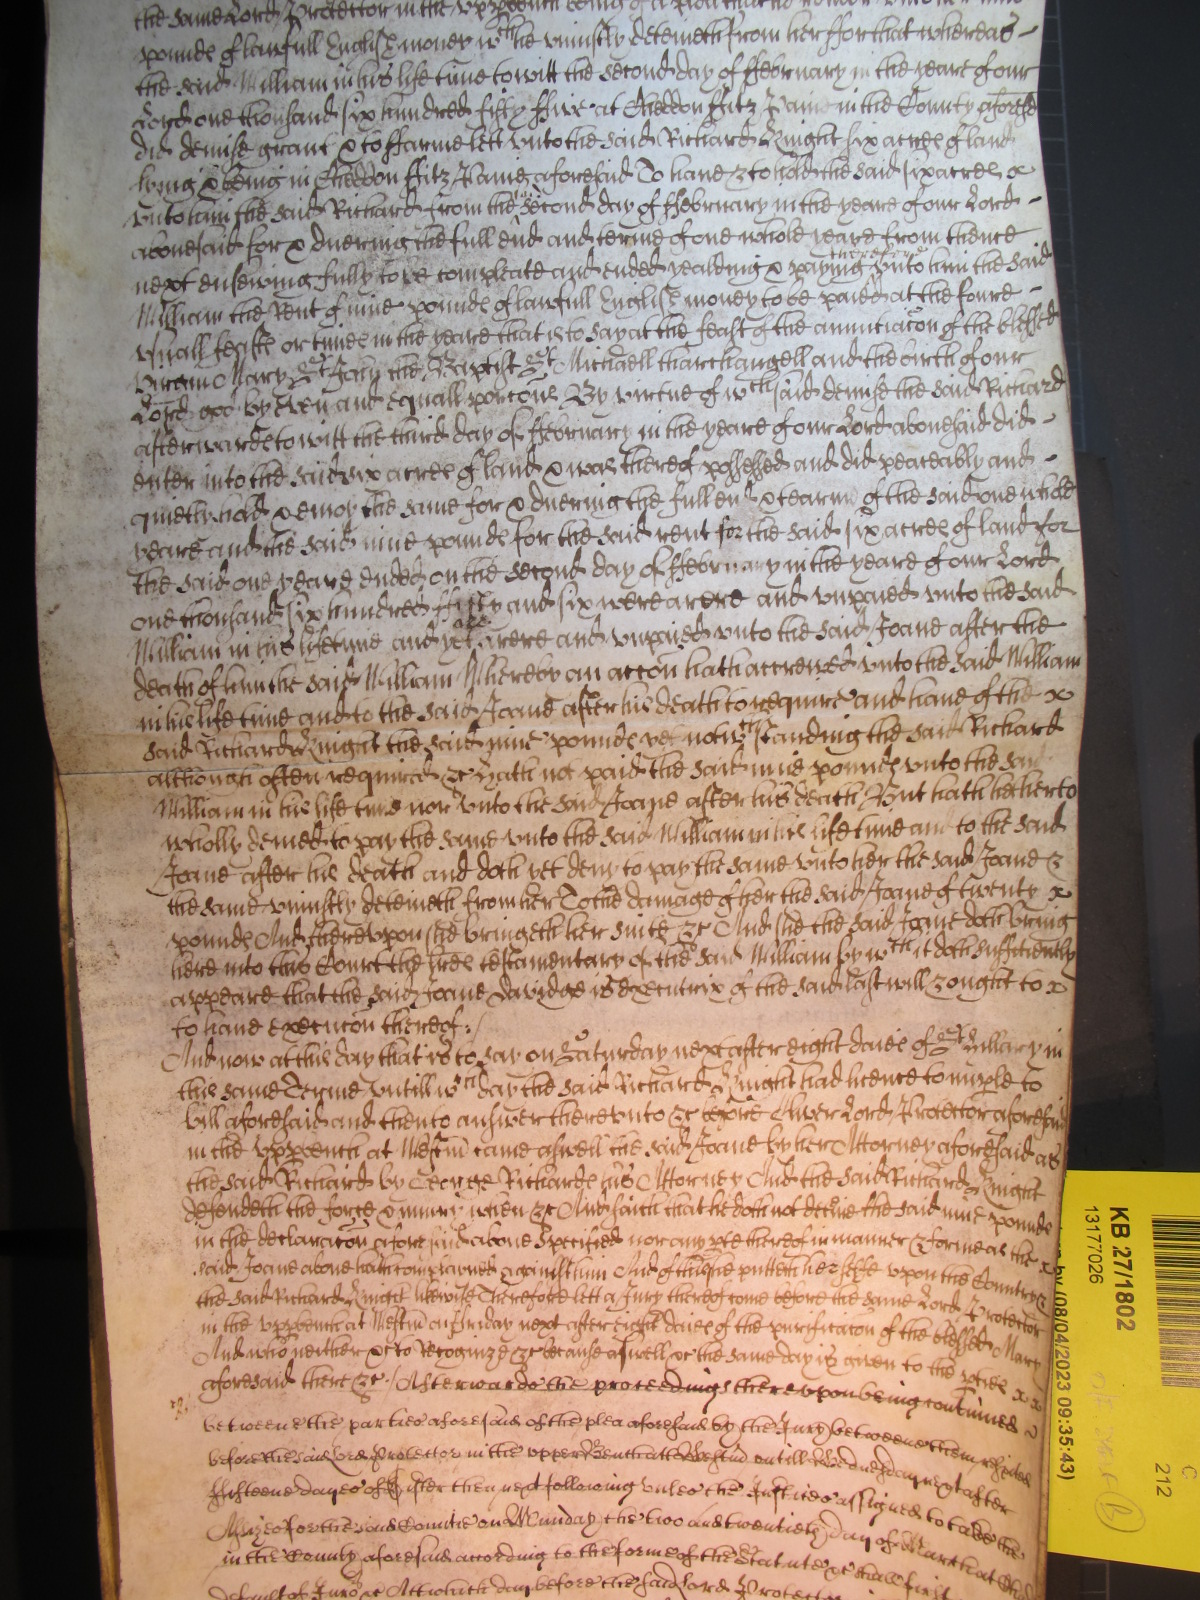 the same Lord Protector in the upper bench being of a plea that he render unto her nine
pounds of lawfull English money wch he uniustly deteineth from her ffor that whereas -
the said William in his life time to witt the second day of ffebruary in the yeare of our
Lord one thousand six hundred fifty ffive at Cheddon ffitz Paine in the County aforesd
did demise grant & to ffarme lett unto the said Richard Knight six acres of land
lying & being in Cheddon ffitz Paine aforesaid To have & to hold the said six acres x
unto him the said Richard from the second day of ffebruary in the yeare of our Lord -
abovesaid for & dureing the full end and terme of one whole yeare from thence
next ensewing fully to be compleate and ended yealding & paying therefore unto him the said
William the Rent of nine pounds of lawfull English money to be paied at the foure -
usuall feasts or times in the yeare that is to say at the feast of the annunciacon of the blessed
Virgin Mary St John the Baptist St Michaell tharchangell and the birth of our
Lord god by even and equall porcons By virtue of wch said demise the said Richard
afterwards to witt the third day of ffebruary in the yeare of our Lord abovesaid did -
enter into the said six acres of land & was thereof possessed and did peaceably and -
quietly hold & enioy the same for & dureing the full end & tearme of the said one whole
yeare and the said nine pounds for the said rent for the said six acres of land for
the said one yeare ended on the second day of ffebruary in the yeare of our Lord
one thousand six hundred ffifty and six were arere and unpaied unto the said
William in his lifetime and yet are arere and unpaied unto the said Joane after the
death of him the said William Whereby an accon hath accrewed unto the said William
in his life time and to the said Joane after his death to require and have of the x
said Richard Knight the said nine pounds yet notwthstanding the said Richard
although often required &c hath not paid the said nine pounds unto the said
William in his life time nor unto the said Joane after his death But hath hitherto
wholly denied to pay the same unto the said William in his life time and to the said
Joane after his death and doth yet deny to pay the same unto her the said Joane &
the same uniustly deteineth from her To the damage of her the said Joane of twenty x
pounds And thereupon she bringeth her suite &c And she the said Joane doth bring
here into this Court the lres testamentary of the said William by wch it doth sufficiently
appeare that the said Joane Davidge is executrix of the said last will & ought to x
to have execucon thereof :/
And now at this day that is to say on Saturday next after eight daies of St Hillary in
this same Terme untill wch day the said Richard Knight had licence to imple to
bill aforesaid and then to answer thereunto &c before Oliver Lord Protector aforesaid
in the upp bench at Westm came aswell the said Joane by her Attorney aforesaid as
the said Richard by George Richards his Attorney And the said Richard Knight
defendeth the force & iniury when &c And saith that he doth not deteine the said nine pounds
in the declaracon aforesaid above specified nor any pte thereof in manner & forme as the x
said Joane above hath complayned against him And of this he putteth her selfe upon the Country &
the said Richard Knight likewise Therefore lett a Jury thereof come before the same Lord Protector
in the upp bench at Westm on ffriday next after eight daies of the purificacon of the blessed Mary
And who neither &c to Recognize &c because aswell &c the same day is given to the pties x x
aforesaid there &c / Afterwards the proceedings thereupon being continued
betweene the parties aforesaid of the plea aforesaid by the Jury betweene them respited
before the said Lord Protector in the upper Bench att Westm untill Wednesday next after
ffifteene dayes of Easter then next following unles the Justices assigned to take the
Assizes for the said Countie on Munday the two and twentieth day of March att
in the County aforesaid according to the forme of the Statute &c shall first
default of Juro &c Att which day before the said Lord Protector
KB 27/1802
13177026
(08/04/2023 09:35:43)
C
212